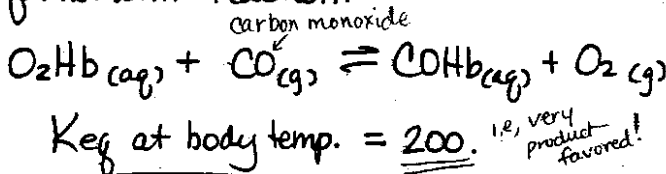 carbon monoxide
O₂Hb(aq) + CO(g) ⇌ COHb(aq) + O₂(g)
Keq at body temp. = 200. i.e, very product favored!